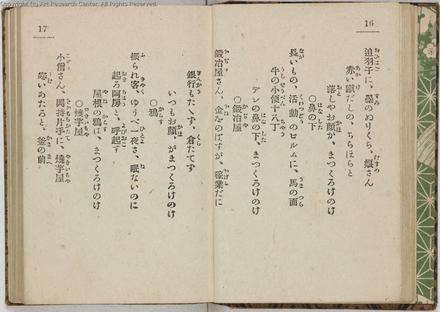 16
追羽子に、墨のぬりくら、娘さん
赤い蹴だしの、ちらほらと
落しやお顔が、まつくろけのけ
○鼻の下
長いもの、活動のフ井ルムに、馬の面
牛の小便十八丁
デレの鼻の下、まつくろけのけ
○鍛冶屋
鍛冶屋さん、金をのばすが、稼業だに
17
銀行もたてず、倉たてず
いつもお顔が、まつくろけのけ
○鴉
振られ客、ゆうべ一夜さ、眠ないのに
起ろ阿房と、呼起す
屋根の鴉は、まつくろけのけ
○焼芋屋
小僧さん、岡持片手に、焼芋屋
寒いのたろと、釜の前